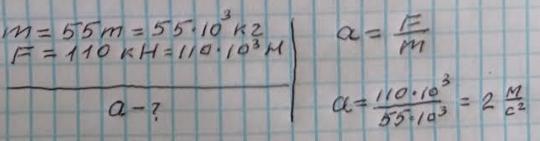 m = 55т = 55·10³ кг
F = 110 кН = 110·10³ Н
a - ?
a = F/m
a = 110·10³/55·10³ = 2 м/с²